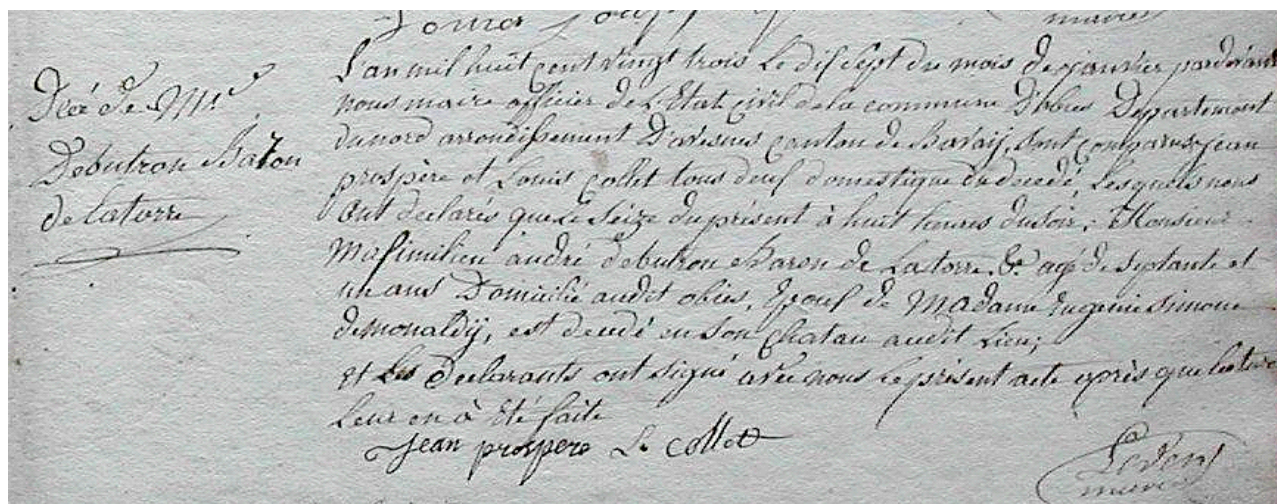 maire
Décé de Mr
Debutron Baron
de Latorre
L'an mil huit cent vingt trois Le dix sept du mois de janvier pardevant
nous maire officier de L'Etat civil de la commune D'obies Departement
du nord arrondissement D'avesnes Canton de Bavaij, sont comparus jean
prospère et Louis Collet tous deux domestique du decedé, Lesquels nous
ont declarés que Le Seize du présent à huit heures du soir, Monsieur
Maximilien andré Debutron Baron de Latorre &c agé de Septante et
un ans Domicilié audit obies, Epoux de Madame Eugenie Simone
demonaldij, est decedé en son Chatau audit Lieu;
et Les Declarants ont signé avec nous Le présent acte après que lecture
Leur en à Eté faite
jean prospere L. Collet
maire